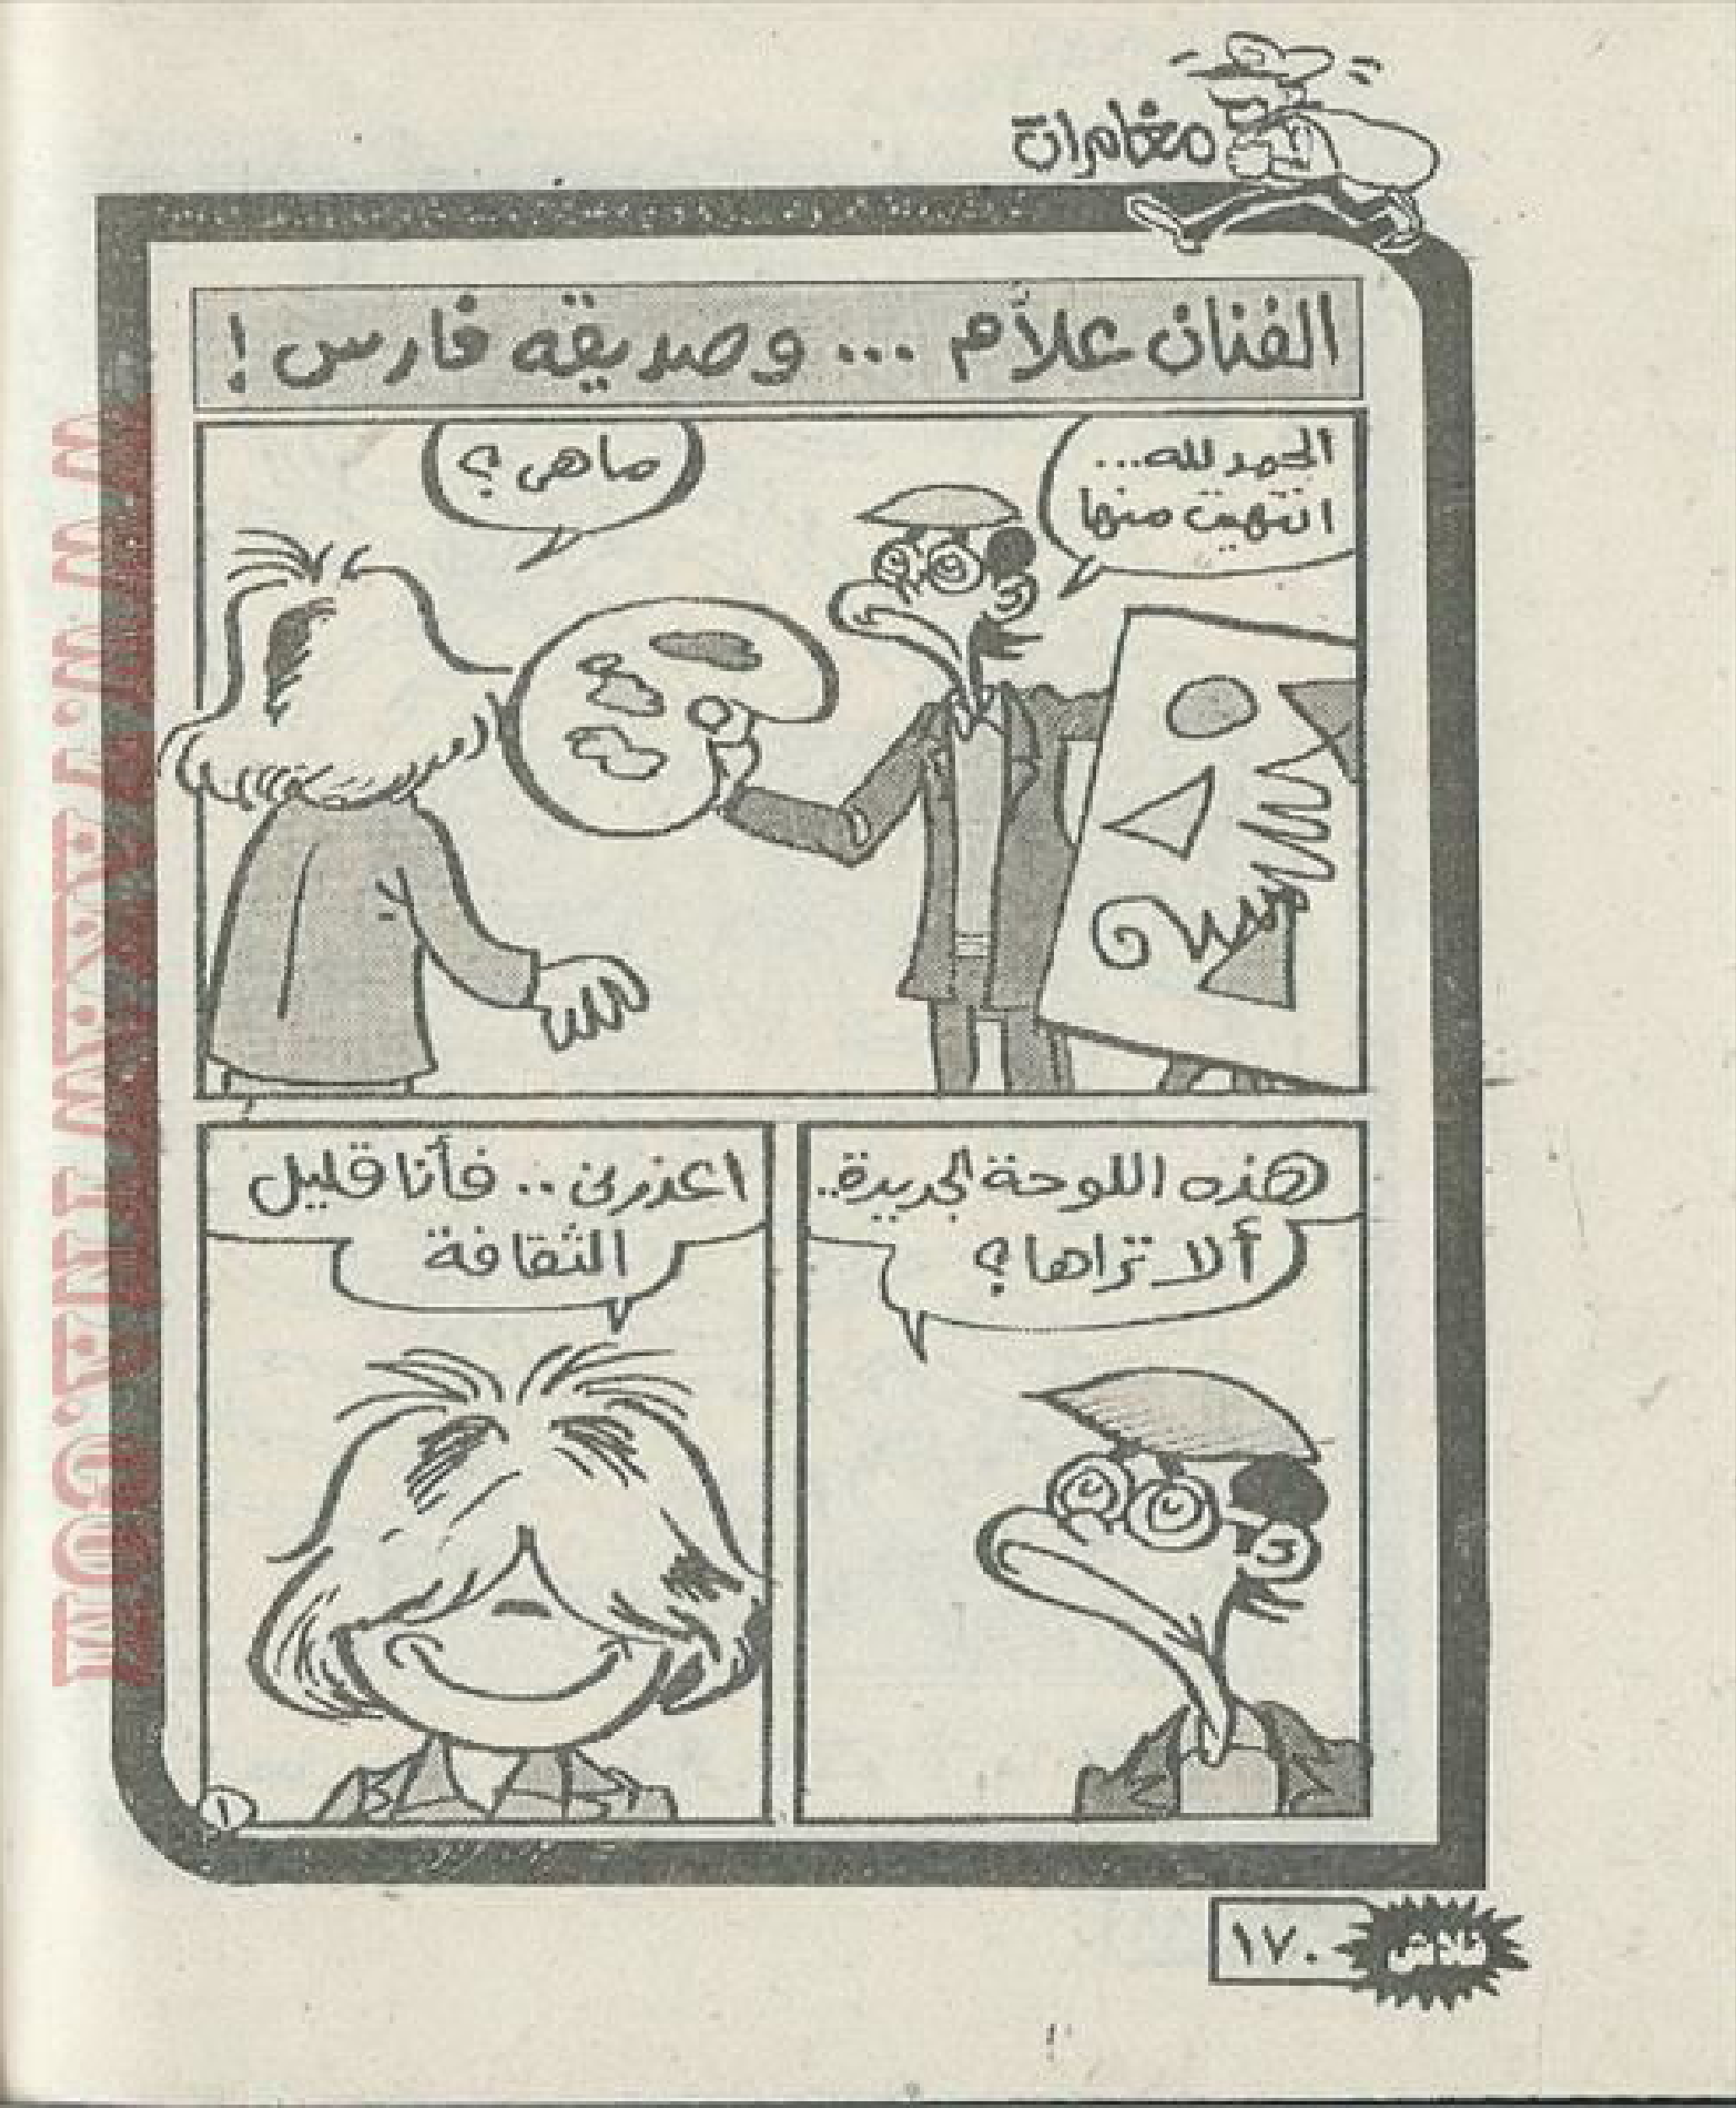 مغامرات
الفنان علاَّم ... وصديقه فارس !
الحمد لله...
انتهيت منها
ماهى ؟
هذه اللوحة الجديدة..
ألا تراها ؟
اعذرنى .. فأنا قليل
الثقافة
١
فلاش
١٧٠